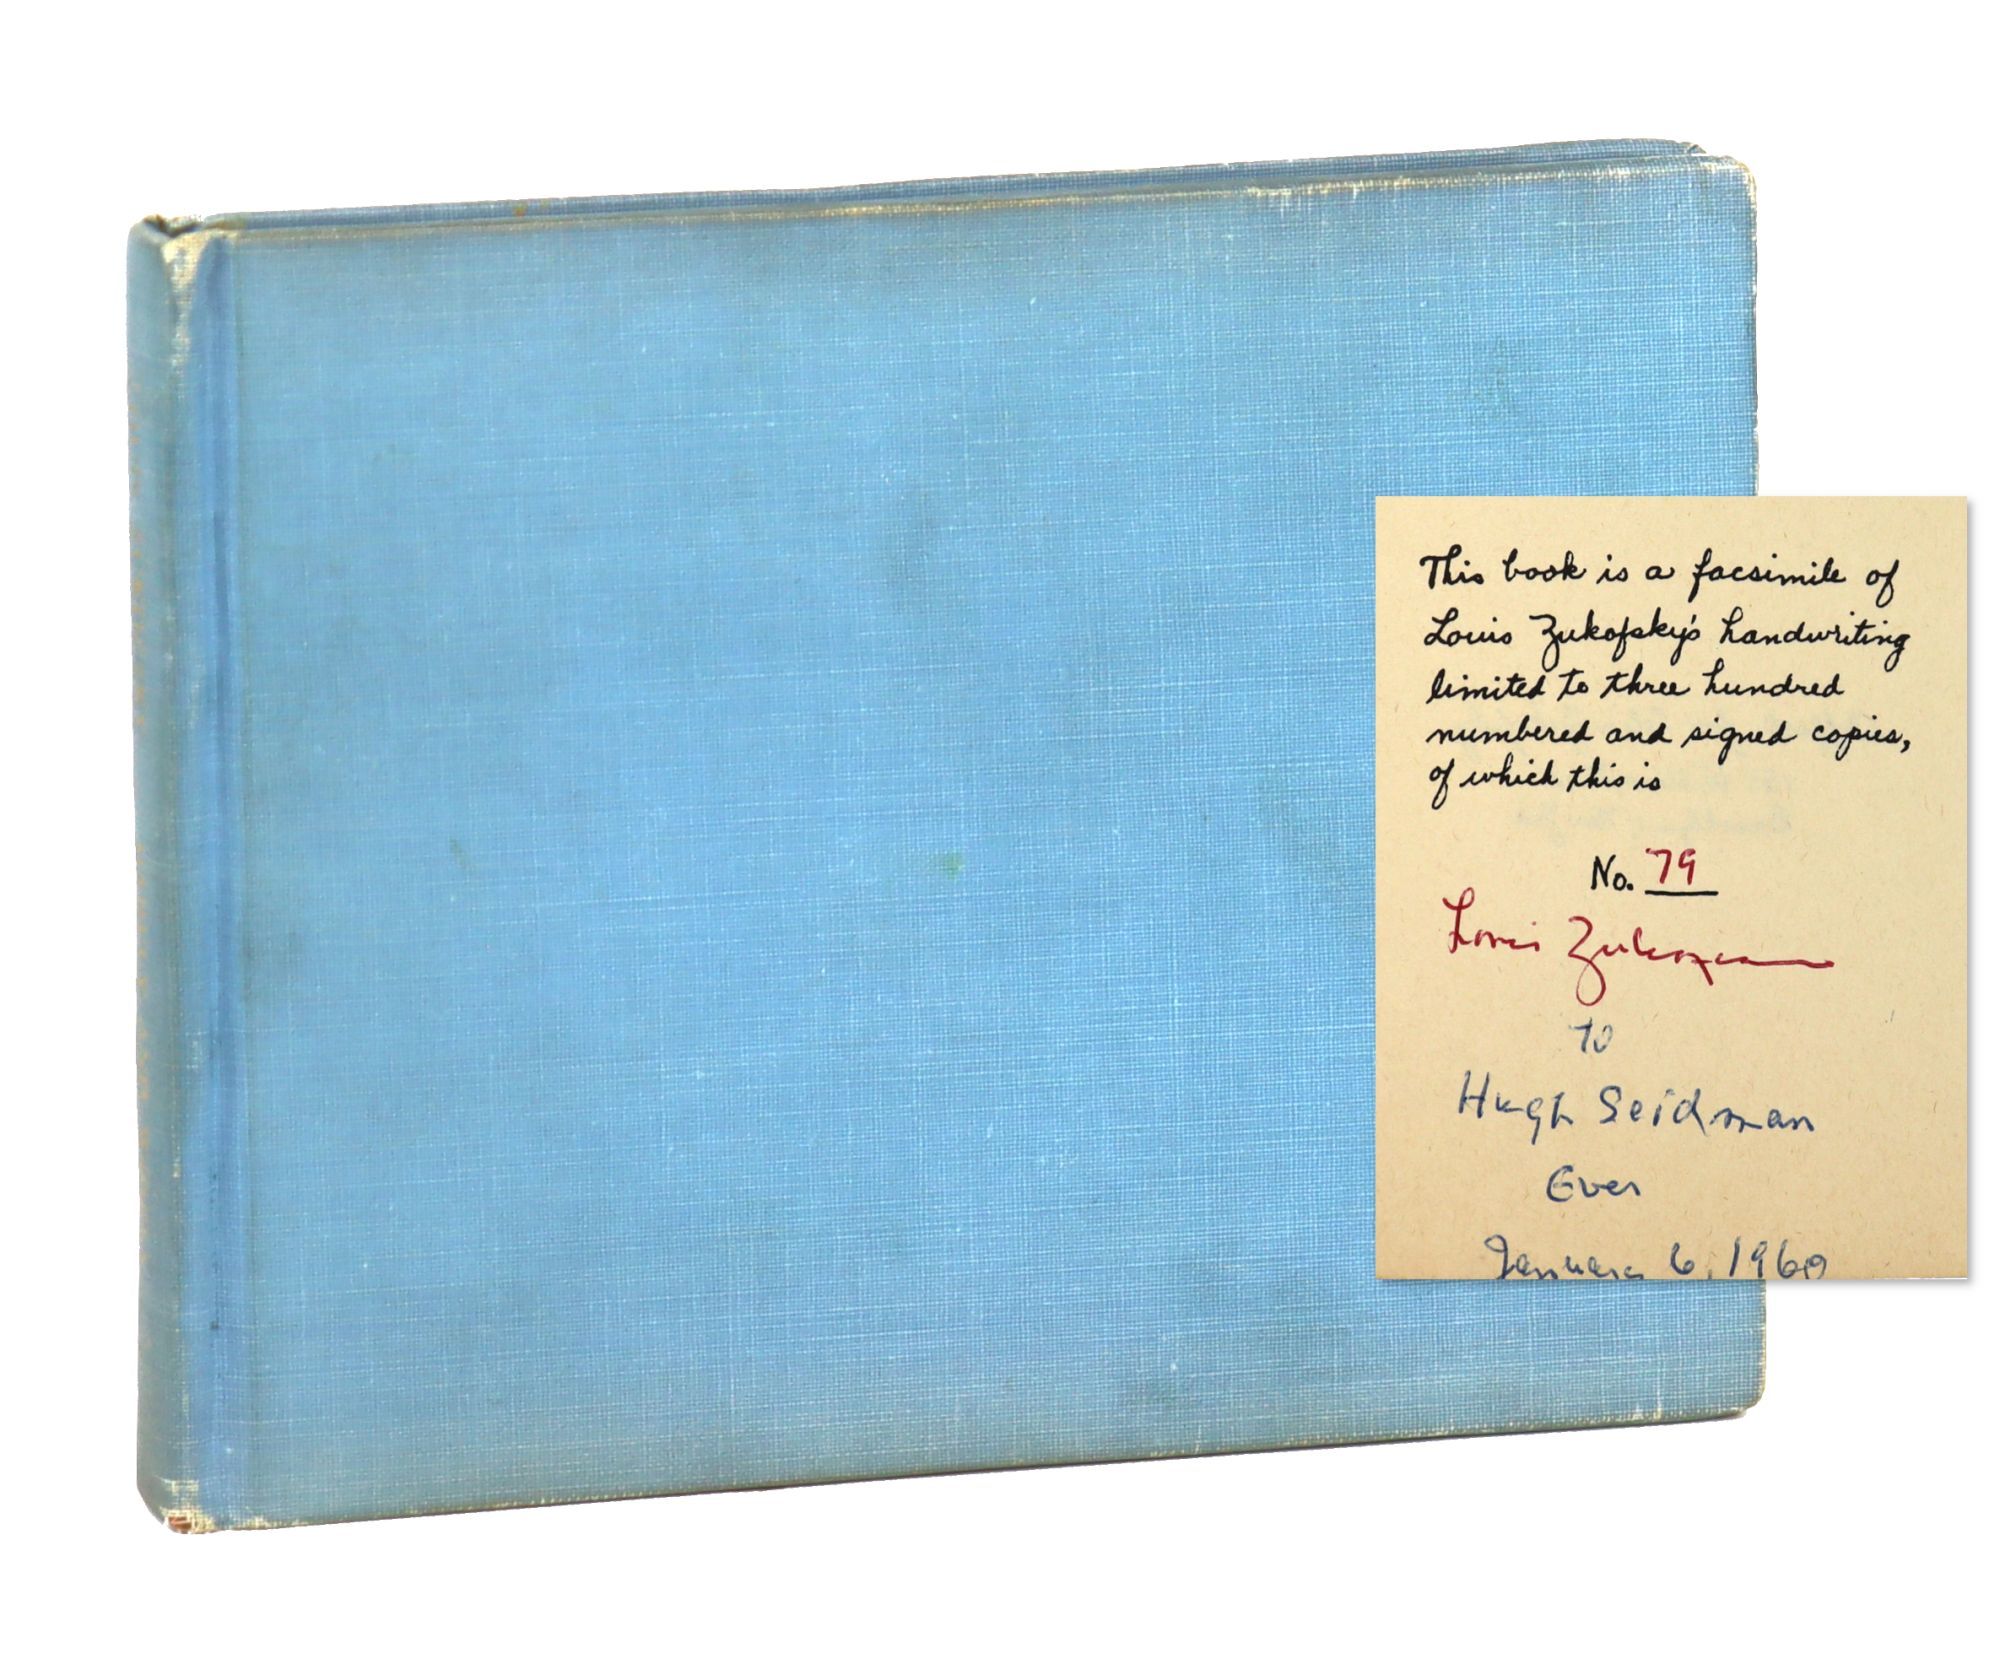 This book is a facsimile of
Louis Zukofsky's handwriting
limited to three hundred
numbered and signed copies,
of which this is
No. 79
Louis Zukofsky
to
Hugh Seidman
Ever
January 6, 1960